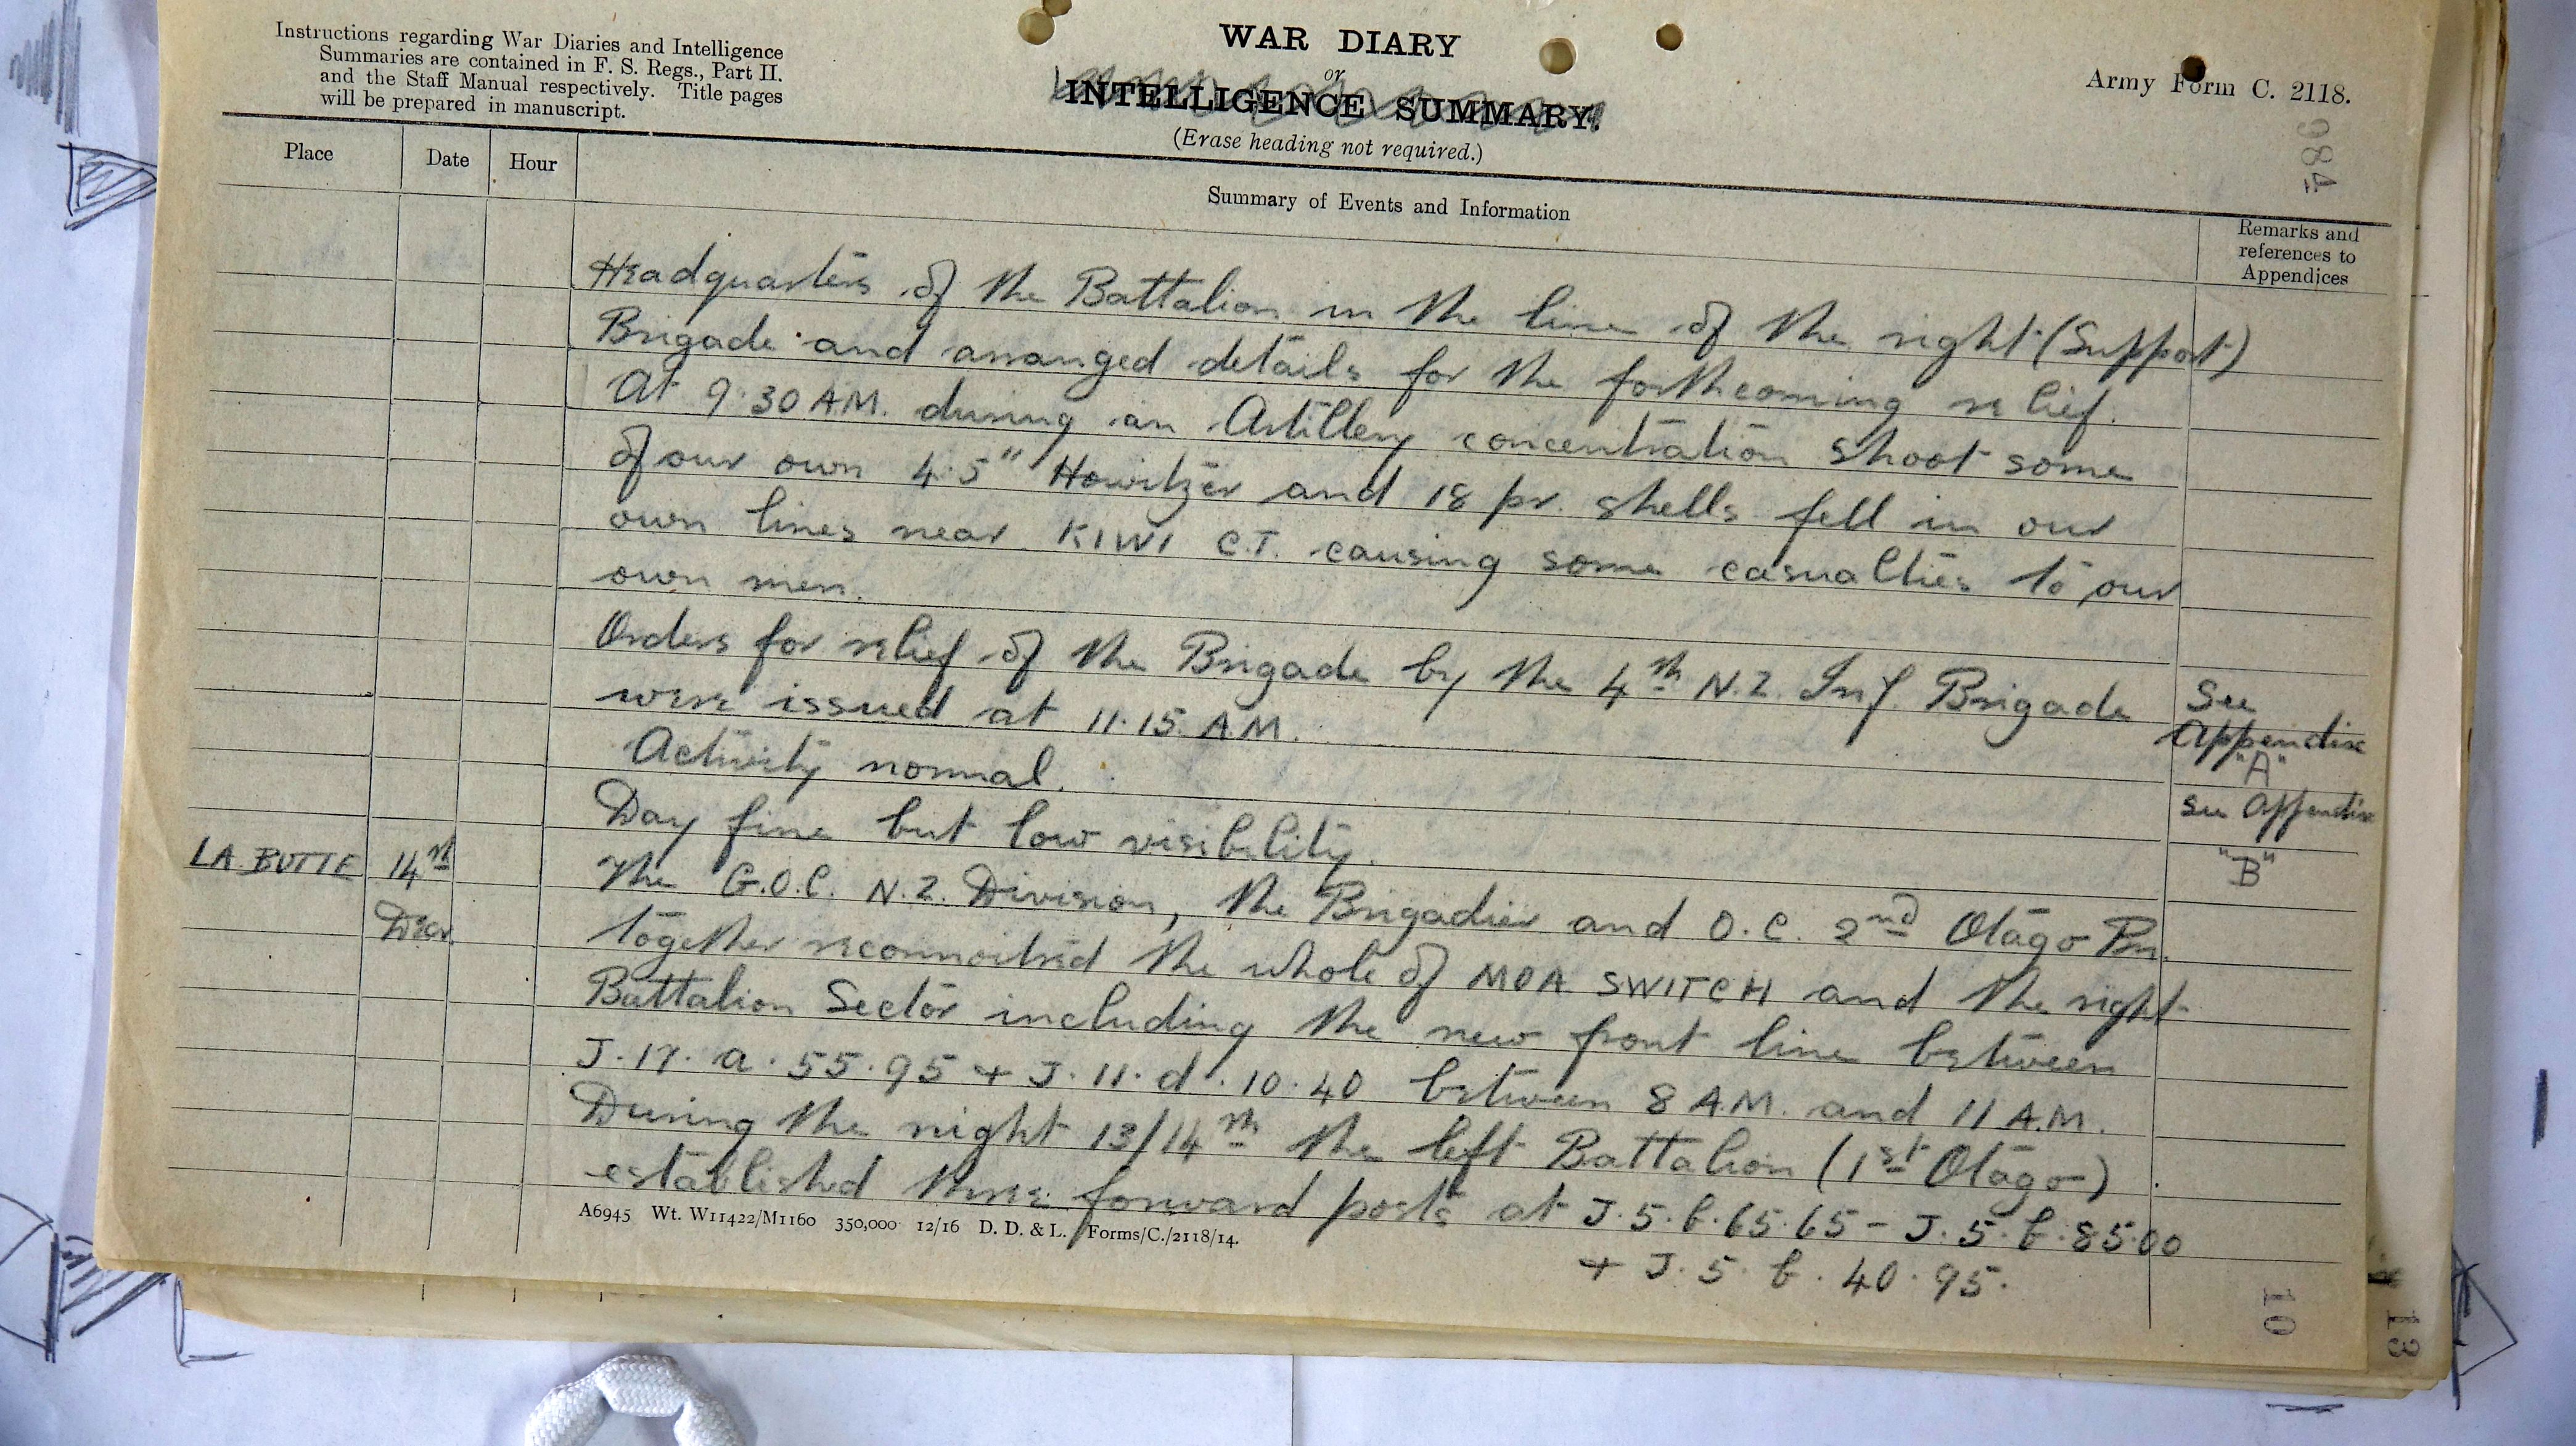 Instructions regarding War Diaries and Intelligence
Summaries are contained in F. S. Regs., Part II.
and the Staff Manual respectively. Title pages
will be prepared in manuscript.
WAR DIARY
or
INTELLIGENCE SUMMARY.
(Erase heading not required.)
Army Form C. 2118.
984
Place
Date
Hour
Summary of Events and Information
Remarks and
references to
Appendices
Headquarters of the Battalion in the line of the right (Support)
Brigade and arranged details for the forthcoming relief.
At 9.30 A.M. during an Artillery concentration shoot some
of our own 4.5" Howitzer and 18 pr. shells fell in our
own lines near KIWI C.T. causing some casualties to our
own men.
Orders for relief of the Brigade by the 4th N.Z. Inf. Brigade
were issued at 11.15 A.M.
See
Appendix
"A"
Activity normal.
Day fine but low visibility.
see Appendix
"B"
LA BUTTE 14th The G.O.C. N.Z. Division, the Brigadier and O.C. 2nd Otago Bn.
Decr. together reconnoitred the whole of MOA SWITCH and the right
Battalion Sector including the new front line between
J.17.a.55.95 + J.11.d.10.40 between 8 A.M. and 11 A.M.
During the night 13/14th the left Battalion (1st Otago)
established three forward posts at J.5.b.65.65 - J.5.b.85.00
+ J.5.b.40.95.
A6945 Wt. W11422/M1160 350,000 12/16 D. D. & L. Forms/C./2118/14.
10
13